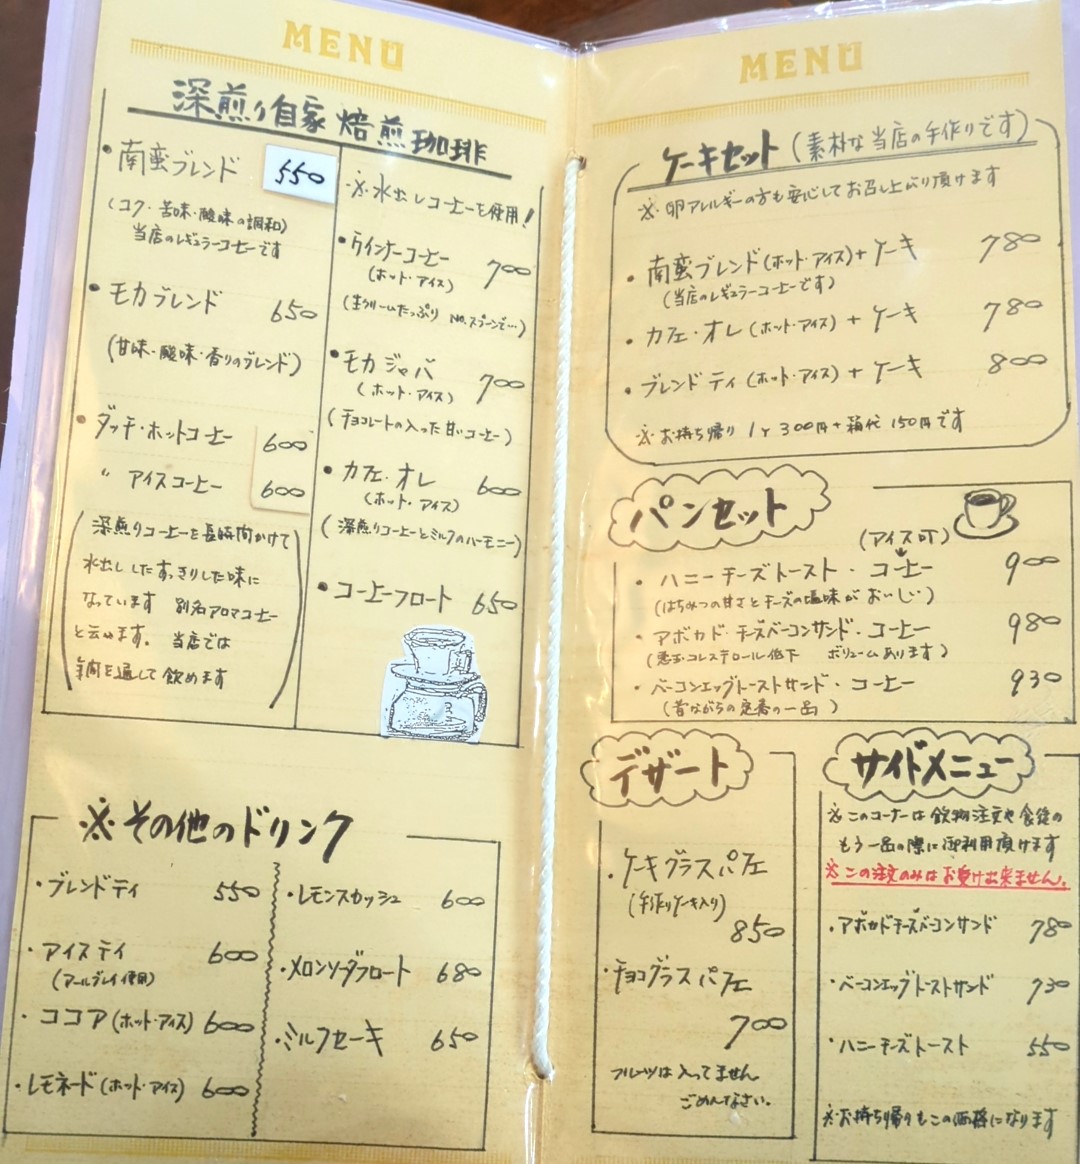 MENU
深煎り自家焙煎珈琲
・南蛮ブレンド 550
(コク・苦味・酸味の調和)
当店のレギュラーコーヒーです
・モカブレンド 650
(甘味・酸味・香りのブレンド)
・ダッチ・ホットコーヒー 600
〃 アイスコーヒー 600
(深煎りコーヒーを長時間かけて
水出ししたすっきりした味に
なっています 別名アロマコーヒー
と云います。 当店では
年間を通して飲めます)
※水出しコーヒーを使用!
・ウインナーコーヒー 700
(ホット・アイス)
(生クリームたっぷり No.スプーンで…)
・モカジャバ 700
(ホット・アイス)
(チョコレートの入った甘いコーヒー)
・カフェ・オレ 600
(ホット・アイス)
(深煎りコーヒーとミルクのハーモニー)
・コーヒーフロート 650
※その他のドリンク
・ブレンドティ 550
・アイスティ 600
(アールグレイ使用)
・ココア(ホット・アイス) 600
・レモネード(ホット・アイス) 600
・レモンスカッシュ 600
・メロンソーダフロート 680
・ミルクセーキ 650
MENU
ケーキセット(素朴な当店の手作りです)
※卵アレルギーの方も安心してお召し上がり頂けます
・南蛮ブレンド(ホット・アイス)+ケーキ 780
(当店のレギュラーコーヒーです)
・カフェ・オレ(ホット・アイス)+ケーキ 780
・ブレンドティ(ホット・アイス)+ケーキ 800
※お持ち帰り 1ヶ300円+箱代150円です
パンセット
(アイス可)
・ハニーチーズトースト・コーヒー 900
(はちみつの甘さとチーズの塩味がおいしい)
・アボカド・チーズベーコンサンド・コーヒー 980
(悪玉コレステロール低下 ボリュームあります)
・ベーコンエッグトーストサンド・コーヒー 930
(昔ながらの定番の一品)
デザート
・ケーキグラスパフェ
(手作りケーキ入り)
850
・チョコグラスパフェ
700
フルーツは入ってません
ごめんなさい。
サイドメニュー
※このコーナーは飲物注文や食後の
もう一品の際に御利用頂けます
※この注文のみはお受け出来ません。
・アボカドチーズベーコンサンド 780
・ベーコンエッグトーストサンド 730
・ハニーチーズトースト 550
※お持ち帰りもこの価格になります